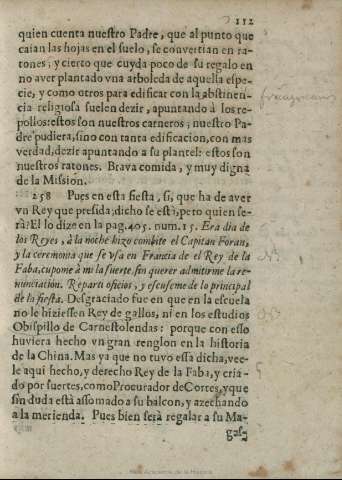 112
quien cuenta nuestro Padre, que al punto que
caian las hojas en el suelo, se convertian en ra-
tones; y cierto que cuyda poco de su regalo en
no aver plantado vna arboleda de aquella espe-
cie, y como otros para edificar con la abstinen-
cia religiosa suelen dezir, apuntando à los re-
pollos: estos son nuestros carneros; nuestro Pa-
dre pudiera, sino con tanta edificacion, con mas
verdad, dezir apuntando a su plantel: estos son
nuestros ratones. Brava comida, y muy digna
de la Mission.
258 Pues en esta fiesta, si, que ha de aver
vn Rey que presida; dicho se està, pero quien se-
rà? El lo dize en la pag. 405. num. 15. Era dia de
los Reyes, à la noche hizo combite el Capitan Foran,
y la ceremonia que se vsa en Francia de el Rey de la
Faba, cupome à mi la suerte, sin querer admitirme la re-
nunciacion. Reparti oficios, y escuseme de lo principal
de la fiesta. Desgraciado fue en que en la escuela
no le hiziessen Rey de gallos, ni en los estudios
Obispillo de Carnestolendas: porque con esso
huviera hecho vn gran renglon en la historia
de la China. Mas ya que no tuvo essa dicha, vee-
le aqui hecho, y derecho Rey de la Faba, y cria-
do por suertes, como Procurador de Cortes, y que
sin duda està assomado a su balcon, y azechando
à la merienda. Pues bien serà regalar a su Ma-
gas-
Real Academia de la Historia